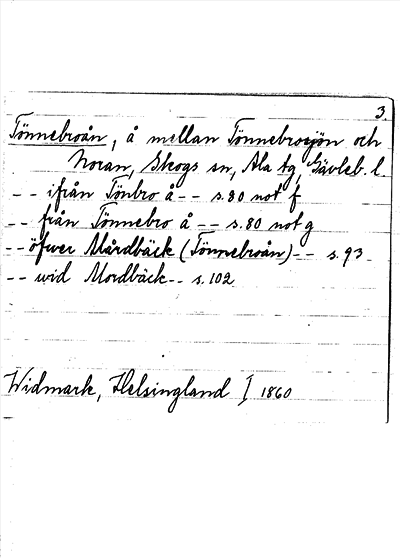 3.
Tönnebroån, å mellan Tönnebrosjön och
Noran, Skogs sn, Ala tg, Gävleb. l.
-- ifrån Tönbro å -- s. 80 not f
-- från Tönnebro å -- s. 80 not g
-- öfwer Mårdbäck (Tönnebroån) -- s. 93
-- wid Mordbäck -- s. 102
Widmark, Helsingland I 1860